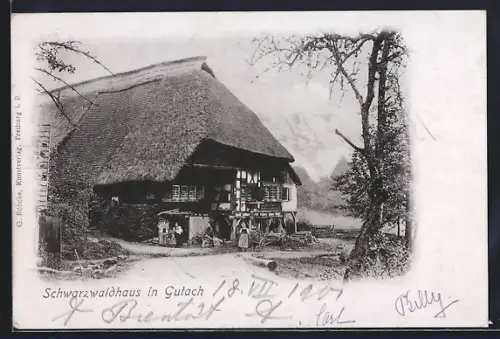 G. Röbcke, Kunstverlag, Freiburg i. B.
Schwarzwaldhaus in Gutach 18 VII 1901
Carl
Billy